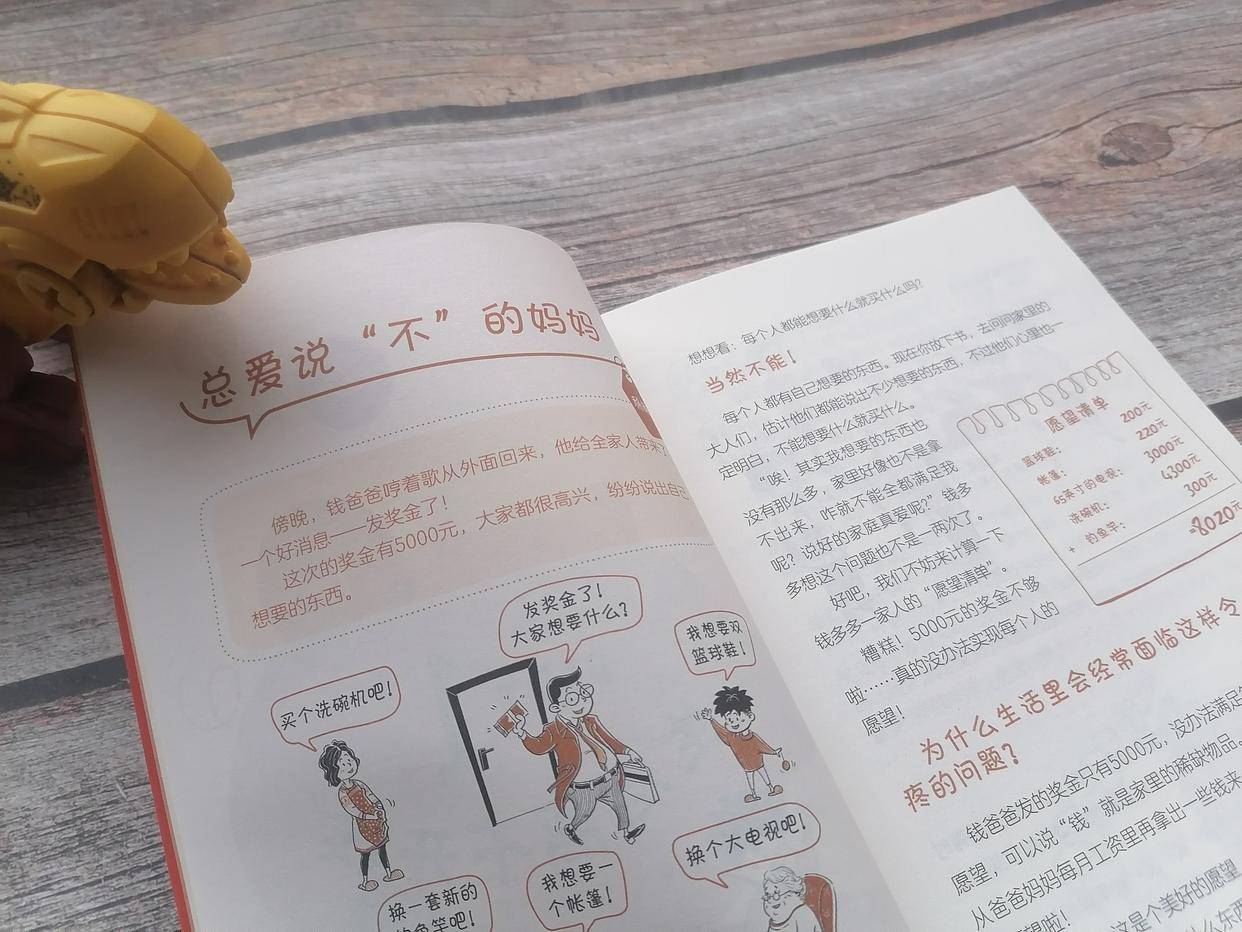 总爱说“不”的妈妈
傍晚，钱爸爸哼着歌从外面回来，他给全家人带来了
一个好消息——发奖金了！
这次的奖金有5000元，大家都很高兴，纷纷说出自己
想要的东西。
发奖金了！
大家想要什么？
我想要双
篮球鞋！
买个洗碗机吧！
换个大电视吧！
我想要一
个帐篷！
换一套新的
钓鱼竿吧！
想想看：每个人都能想要什么就买什么吗？
当然不能！
每个人都有自己想要的东西。现在你放下书，去问问家里的
大人们，估计他们都能说出不少想要的东西，不过他们心里也一
定明白，不能想要什么就买什么。
“唉！其实我想要的东西也
没有那么多，家里好像也不是拿
不出来，咋就不能全都满足我
呢？说好的家庭真爱呢？”钱多
多想这个问题也不是一两次了。
好吧，我们不妨来计算一下
钱多多一家人的“愿望清单”。
糟糕！5000元的奖金不够
啦……真的没办法实现每个人的
愿望！
愿望清单
篮球鞋： 200元
帐篷： 220元
65英寸的电视： 3000元
洗碗机： 4300元
+ 钓鱼竿： 300元
=8020元
为什么生活里会经常面临这样令
疼的问题？
钱爸爸发的奖金只有5000元，没办法满足
愿望，可以说“钱”就是家里的稀缺物品。
从爸爸妈妈每月工资里再拿出一些钱来
望啦！
这是个美好的愿望
什么东西